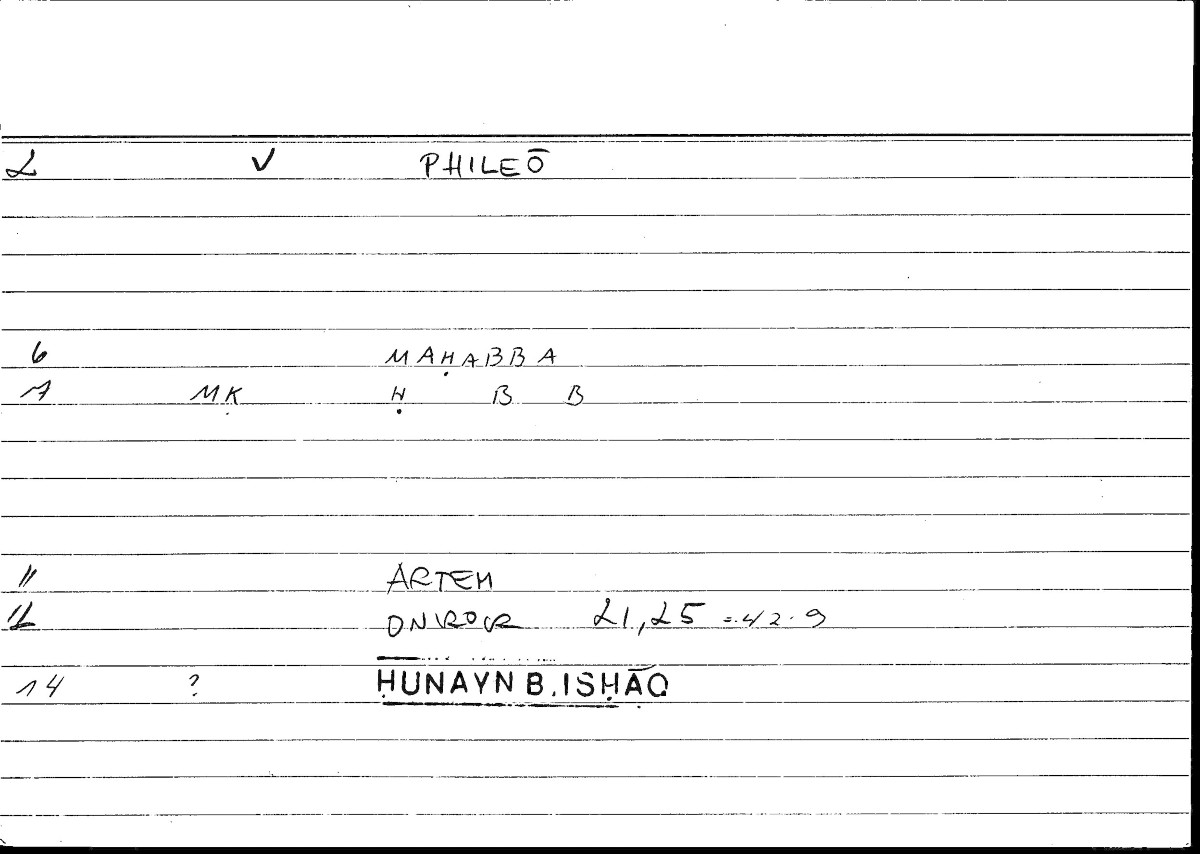 2 V PHILEŌ
6 MAḤABBA
7 MḲ Ḥ B B
11 ARTEM
12 ONIROCR 21,25 = 42.9
14 ? ḤUNAYN B. ISḤĀQ